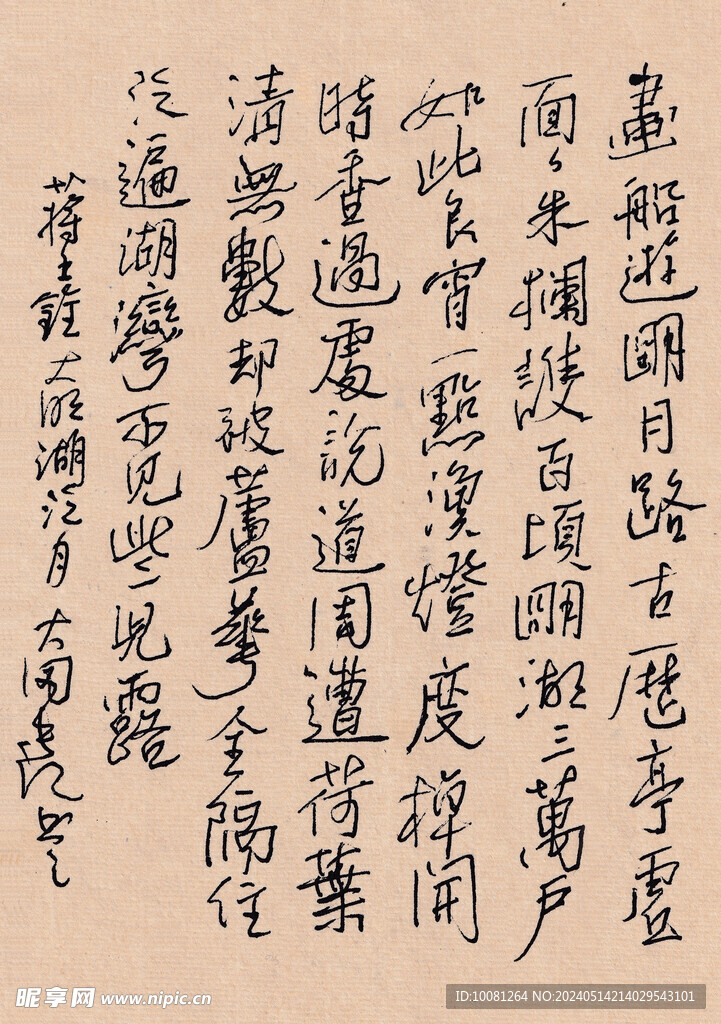 畫船遊朙月路古歷亭虛
面々朱欄護百頃朙湖三萬戶
如此良宵一點漁燈度棹開
時香過處説道周遭荷葉
清無數却被蘆華全隔住
泛遍湖灣不見些兒露
蔣士銓大明湖泛月 大书之
昵享网 www.nipic.cn
ID:10081264 NO:20240514214029543101